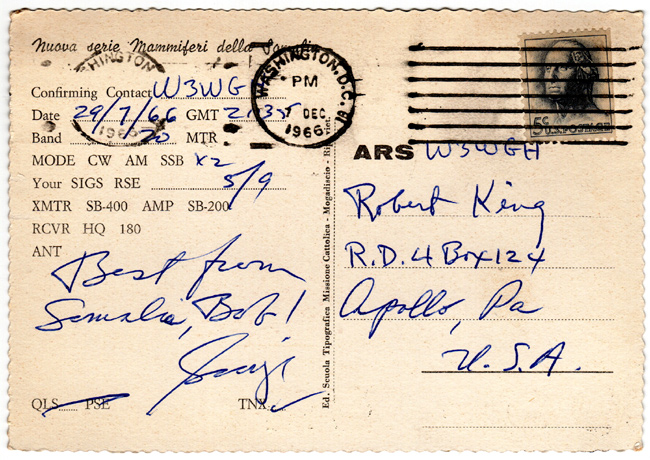 Nuova serie Mammiferi della Somalia
WASHINGTON
1966
WASHINGTON, D.C.
PM
7 DEC
1966
5c U.S. POSTAGE
Confirming Contact W3WG
Date 29/7/66 GMT
Band 20 MTR
MODE CW AM SSB x2
Your SIGS RSE 5/9
XMTR SB-400 AMP SB-200
RCVR HQ 180
ANT
Best from
Somalia, Bob!
QLS PSE TNX
Ed. Scuola Tipografica Missione Cattolica - Mogadiscio -
ARS W3WGH
Robert King
R.D.4 Box 124
Apollo, Pa
U.S.A.